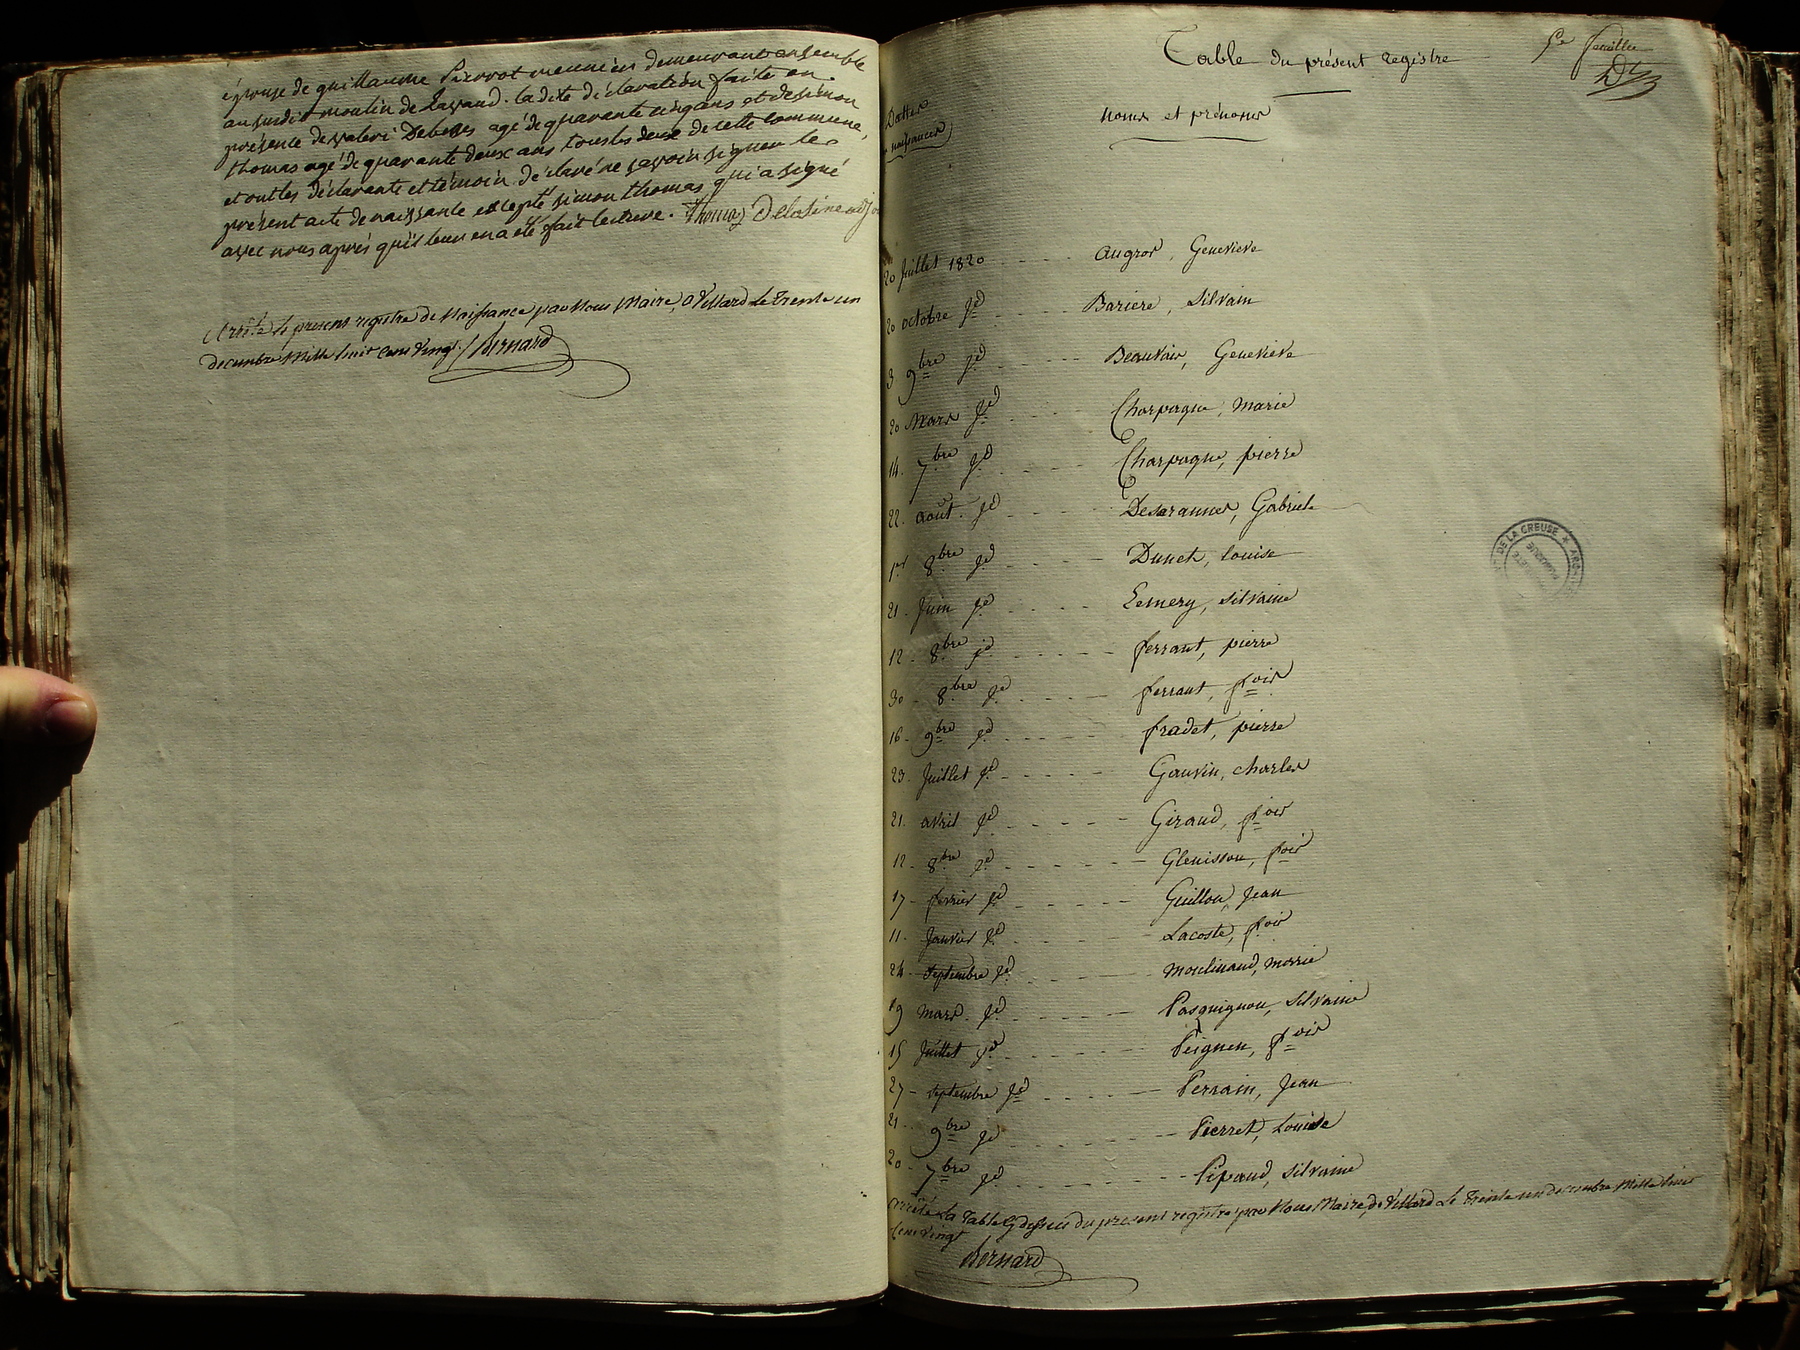 épouse de guillaume Pierrot meunier demeurant ensemble
au susdit moulin de Lavaud. la dite déclaration faite en
présence de valeri Deberes agé de quarante cinq ans et de simon
thomas agé de quarante deux ans tous les deux de cette commune,
et ont les déclarants et témoin déclaré ne savoir signer le
présent acte de naissante excepté simon thomas qui a signé
avec nous après qu'il leur en a été fait lecture. Thomas
Arrêté le présent registre de Naissance par Nous Maire, a Villard Le trente un
decembre Mille huit cent vingt / Bernard
Table du présent registre
5e feuillet
Dattes
naissances
noms et prénoms
20 Juillet 1820 Augros, Geneviève
20 octobre jd Bariere, Silvain
3 9bre jd Beauvais, Geneviève
20 Mars jd Charpagne, marie
14. 7bre jd Charpagne, pierre
22. aout. jd Desarannes, Gabriele
1er 8bre jd Dunet, louise
21. Juin jd Esmery, silvaine
12 - 8bre jd ferrant, pierre
30 - 8bre jd ferrant, fois
16 - 9bre jd fradet, pierre
23. Juillet jd Gauvin, charles
21. avril jd Giraud, fois
12 - 8bre jd Glenisson, fois
17 - fevrier jd Guillou, Jean
11. Janvier jd Lacoste, fois
24 - septembre jd Moulinaud, marie
19 mars jd Pasquignon, silvaine
15 Juillet jd Peignen, fois
27 - septembre jd Perrain, Jean
21 - 9bre jd Pierret, Louise
20 - 7bre jd Pipaud, silvaine
Arrêté La Table Cy dessus du present registre par Nous Maire, de Villard Le trente un decembre Mille huit
Cent vingt
Bernard
DE LA CREUSE